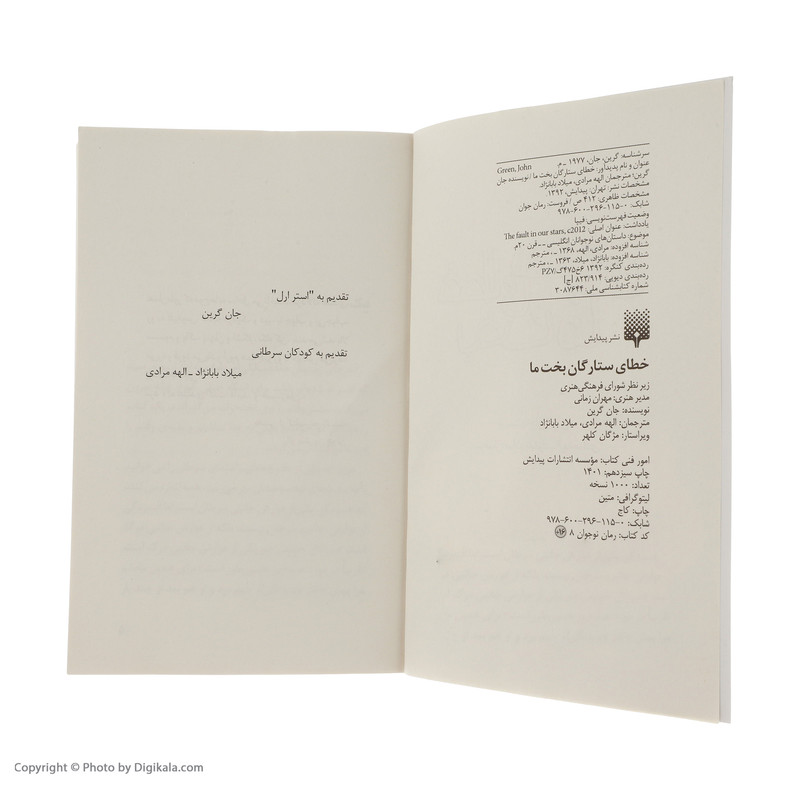 سرشناسه: گرین، جان، ۱۹۷۷ - م. Green, John
عنوان و نام پدیدآور: خطای ستارگان بخت ما / نویسنده جان
گرین؛ مترجمان الهه مرادی، میلاد بابانژاد.
مشخصات نشر: تهران: پیدایش، ۱۳۹۲
مشخصات ظاهری: ۴۱۲ ص / فروست: رمان جوان
شابک: ۰-۱۱۵-۲۹۶-۶۰۰-۹۷۸
وضعیت فهرست‌نویسی: فیپا
یادداشت: عنوان اصلی: The fault in our stars, c2012
موضوع: داستان‌های نوجوانان انگلیسی -- قرن ۲۰م.
شناسه افزوده: مرادی، الهه، ۱۳۶۸ -، مترجم
شناسه افزوده: بابانژاد، میلاد، ۱۳۶۳ -، مترجم
رده‌بندی کنگره: ۱۳۹۲ ۶خ۴۷۵گ/PZ۷
رده‌بندی دیویی: ۸۲۳/۹۱۴ [ج]
شماره کتابشناسی ملی: ۳۰۸۷۶۴۴
نشر پیدایش
خطای ستارگان بخت ما
زیر نظر شورای فرهنگی‌هنری
مدیر هنری: مهران زمانی
نویسنده: جان گرین
مترجمان: الهه مرادی، میلاد بابانژاد
ویراستار: مژگان کلهر
امور فنی کتاب: مؤسسه انتشارات پیدایش
چاپ سیزدهم: ۱۴۰۱
تعداد: ۱۰۰۰ نسخه
لیتوگرافی: متین
چاپ: کاج
شابک: ۰-۱۱۵-۲۹۶-۶۰۰-۹۷۸
کد کتاب: رمان نوجوان ۸
تقدیم به "استر ارل"
جان گرین
تقدیم به کودکان سرطانی
میلاد بابانژاد - الهه مرادی
Copyright © Photo by Digikala.com